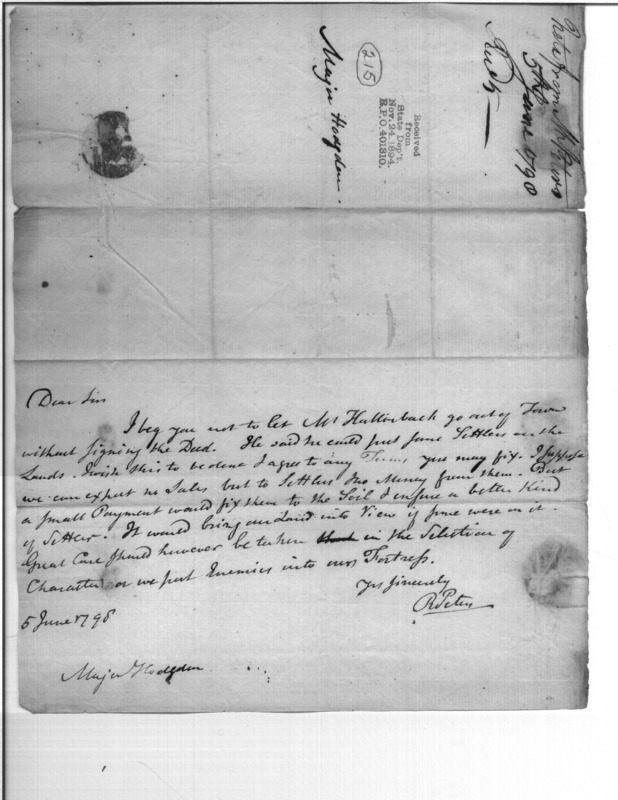 Note from M Peters
5th June 1790
Major Hodgden.
215
Received
from
State Dep't.
Nov. 24, 1894.
R.P.O. 401810.
Dear Sir
I beg you not to let Mr Hallorback go out of Town
without signing the Deed. He said he could put some Settlers on the
Lands. I wish this to be done & agree to any Terms you may fix. I suppose
we can expect no Sales but to Settlers & no Money from them. But
a small Payment would fix them to the Soil & insure a better Kind
of Settler. It would bring our Land into View if some were on it.
Great Care should however be taken in the Selection of
Character or we put Enemies into our Fortress.
Yrs Sincerely
R Peters
5 June 1798
Major Hodgden